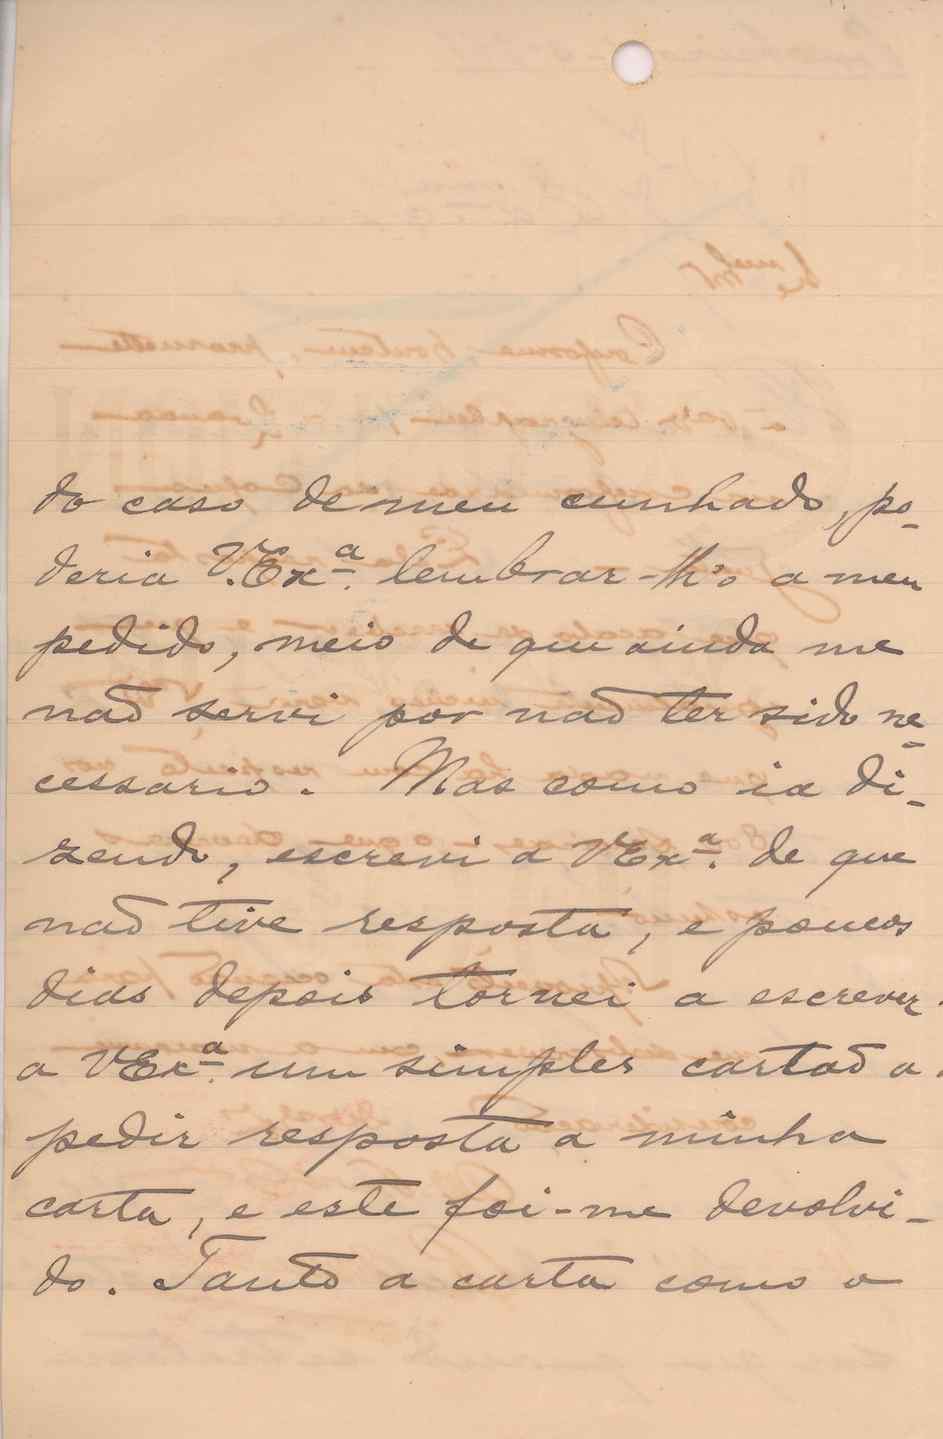 do caso de meu cunhado, po-
deria V.Exª. lembrar-lh'o a meu
pedido, meio de que ainda me
não servi por não ter sido ne-
cessario. Mas como ia di-
zendo, escrevi a VExª. de que
não tive resposta, e poucos
dias depois tornei a escrever
a VExª. um simples cartão a
pedir resposta a minha
carta, e este foi-me devolvi-
do. Tanto a carta como o